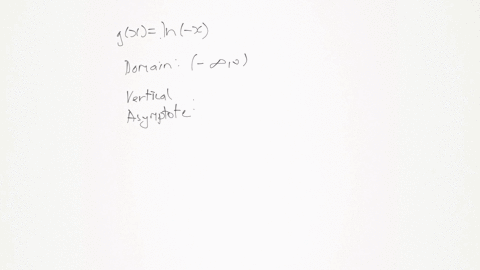 g(x) = ln(-x)
Domain: (-∞,0)
Vertical
Asymptote: